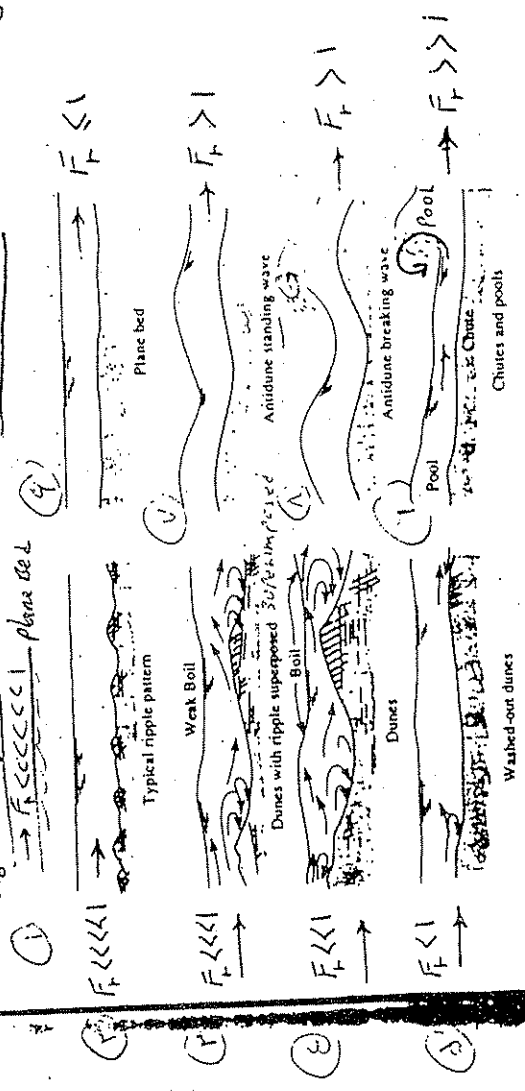 ۱ → Fr <<<<<1 plane Bed
۲ Fr <<<<1 →
Typical ripple pattern
۳ Fr <<<1 →
Weak Boil
Dunes with ripple superposed superimposed
۴ Fr <<1 →
Boil
Dunes
۵ Fr <1 →
Washed-out dunes
۶ → Fr ≤ 1
Plane bed
۷ → Fr > 1
Antidune standing wave
۸ → Fr > 1
Antidune breaking wave
۹ → Fr >> 1
Pool
Pool
Chute
Chutes and pools